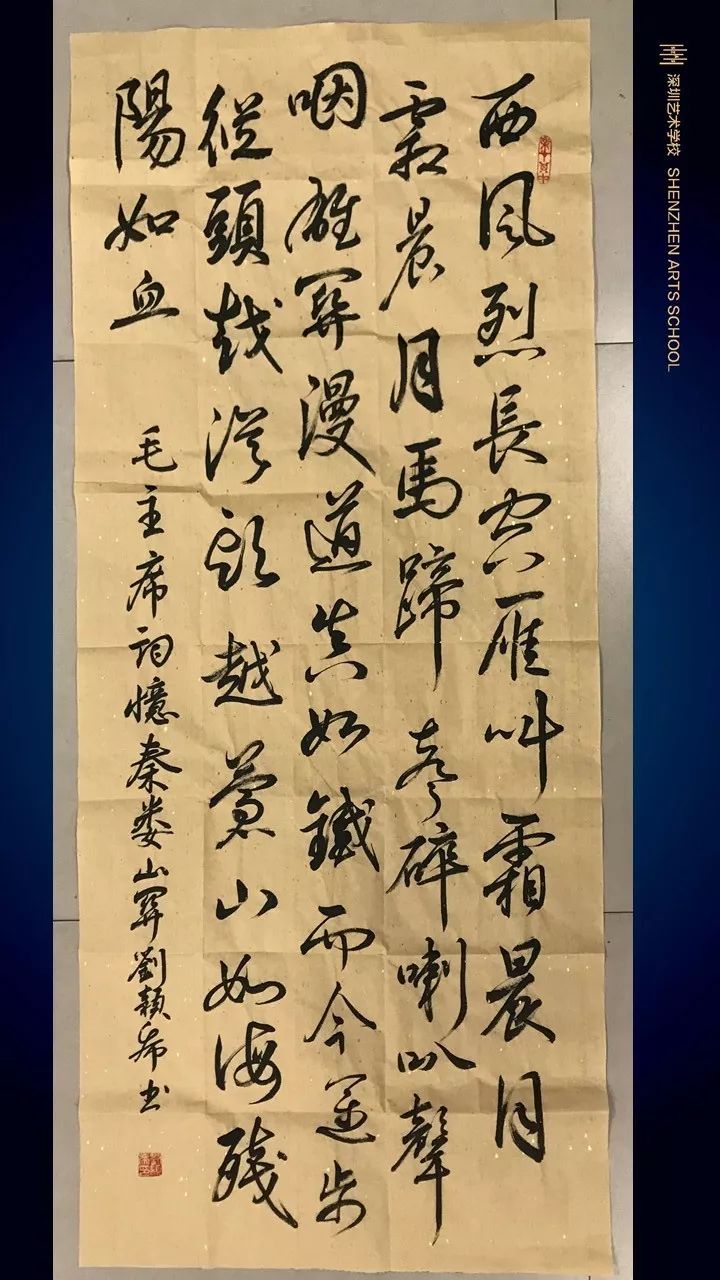 西风烈長空雁叫霜晨月
霜晨月馬蹄聲碎喇叭聲
咽雄関漫道真如鐵而今邁步
從頭越從頭越蒼山如海殘
陽如血
毛主席詞憶秦娄山関劉穎希书
深圳艺术学校 SHENZHEN ARTS SCHOOL